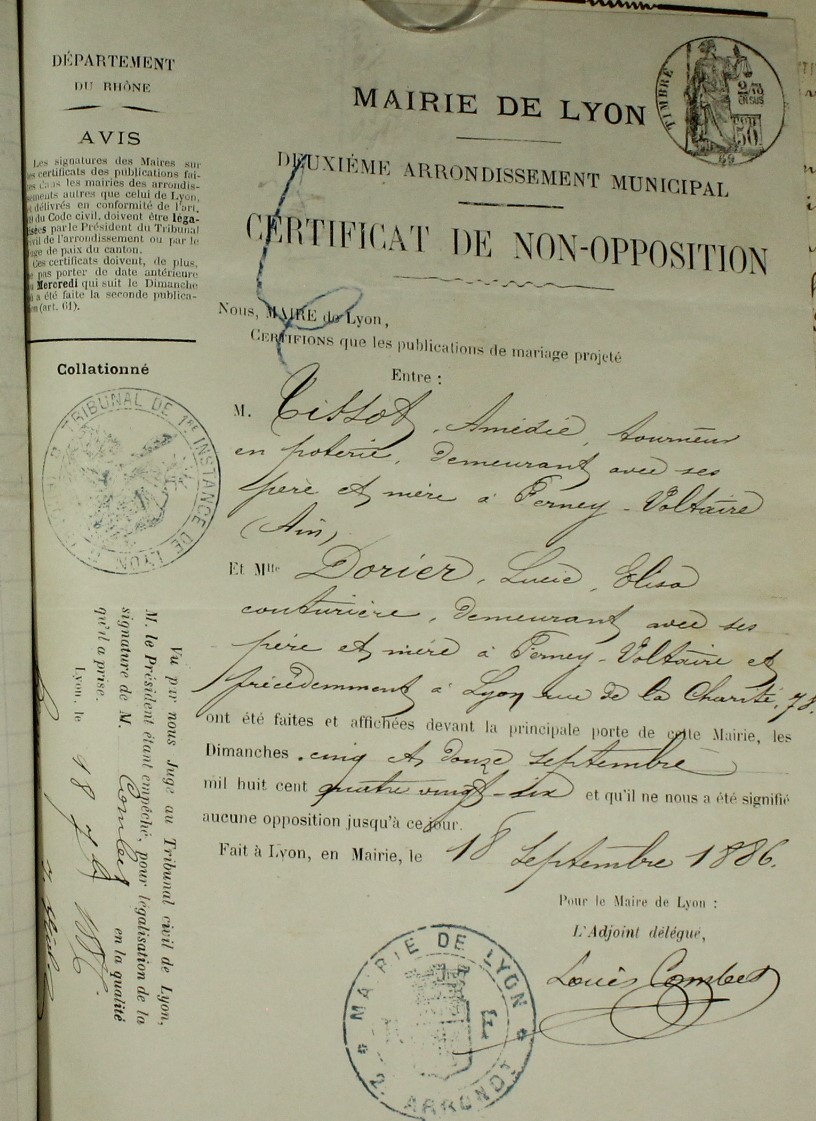 DÉPARTEMENT
DU RHÔNE
AVIS
Les signatures des Maires sur
les certificats des publications fai-
tes dans les mairies des arrondis-
sements autres que celui de Lyon,
et délivrés en conformité de l'art.
du Code civil, doivent être léga-
lisées par le Président du Tribunal
civil de l'arrondissement ou par le
juge de paix du canton.
Ces certificats doivent, de plus,
ne pas porter de date antérieure
au Mercredi qui suit le Dimanche
où a été faite la seconde publica-
tion (art. 61).
Collationné
TRIBUNAL DE 1RE INSTANCE DE LYON
TIMBRE
50
MAIRIE DE LYON
DEUXIÈME ARRONDISSEMENT MUNICIPAL
CERTIFICAT DE NON-OPPOSITION
Nous, MAIRE de Lyon,
CERTIFIONS que les publications de mariage projeté
Entre :
M. Tissot, Amédié, tourneur
en poterie, demeurant avec ses
père et mère à Ferney-Voltaire
(Ain)
Et Mlle Dorier, Lucie, Elisa
couturière, demeurant avec ses
père et mère à Ferney-Voltaire et
précédemment à Lyon rue de la Charité, 78.
ont été faites et affichées devant la principale porte de cette Mairie, les
Dimanches cinq et douze septembre
mil huit cent quatre vingt-six et qu'il ne nous a été signifié
aucune opposition jusqu'à ce jour.
Fait à Lyon, en Mairie, le 18 Septembre 1886.
Pour le Maire de Lyon :
L'Adjoint délégué,
Louis Combet
MAIRIE DE LYON
2. ARRONDT
Vu par nous Juge au Tribunal civil de Lyon,
M. le Président étant empêché, pour légalisation de la
signature de M. Combet en la qualité
qu'il a prise.
Lyon, le 18 7bre 1886.